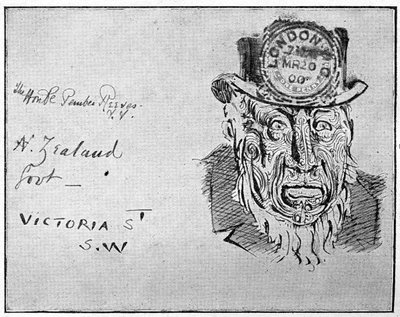 The Honble Pember Reeves.
N. Zealand
Govt —
VICTORIA ST
S.W
LONDON
MR 20
00